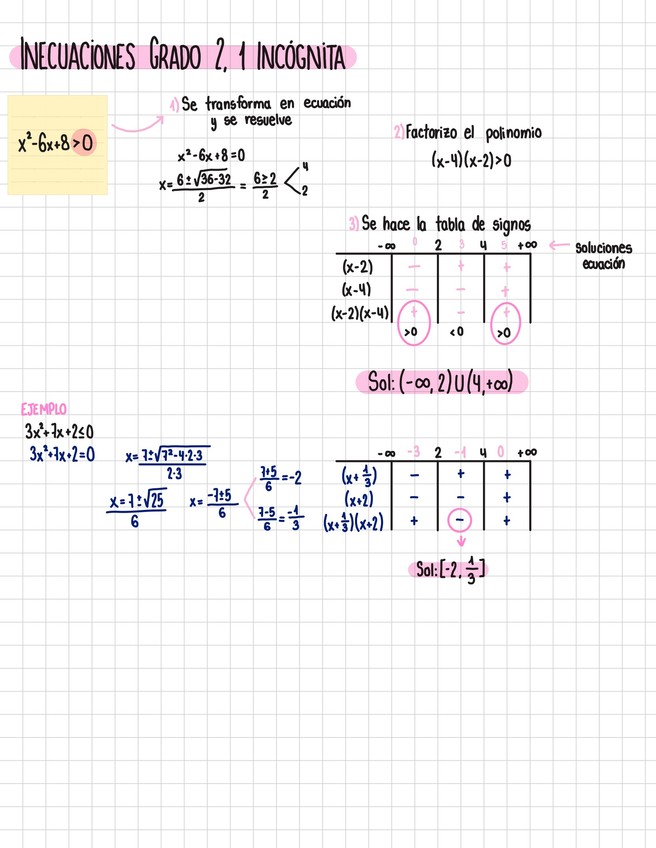 INECUACIONES GRADO 2, 1 INCÓGNITA
x²-6x+8>0
1) Se transforma en ecuación
y se resuelve
x²-6x+8=0
x= 6±√36-32 / 2 = 6±2 / 2 < 4
2
2) Factorizo el polinomio
(x-4)(x-2)>0
3) Se hace la tabla de signos
-∞ 0 2 3 4 5 +∞ ← soluciones
ecuación
(x-2) - + +
(x-4) - - +
(x-2)(x-4) + - +
>0 <0 >0
Sol: (-∞, 2) U (4, +∞)
EJEMPLO
3x²+7x+2≤0
3x²+7x+2=0
x= 7±√7²-4·2·3 / 2·3
x= 7±√25 / 6
x= -7±5 / 6
7+5 / 6 = -2
7-5 / 6 = -1/3
-∞ -3 2 -1 4 0 +∞
(x+1/3) - + +
(x+2) - - +
(x+1/3)(x+2) + - +
Sol: [-2, 1/3]